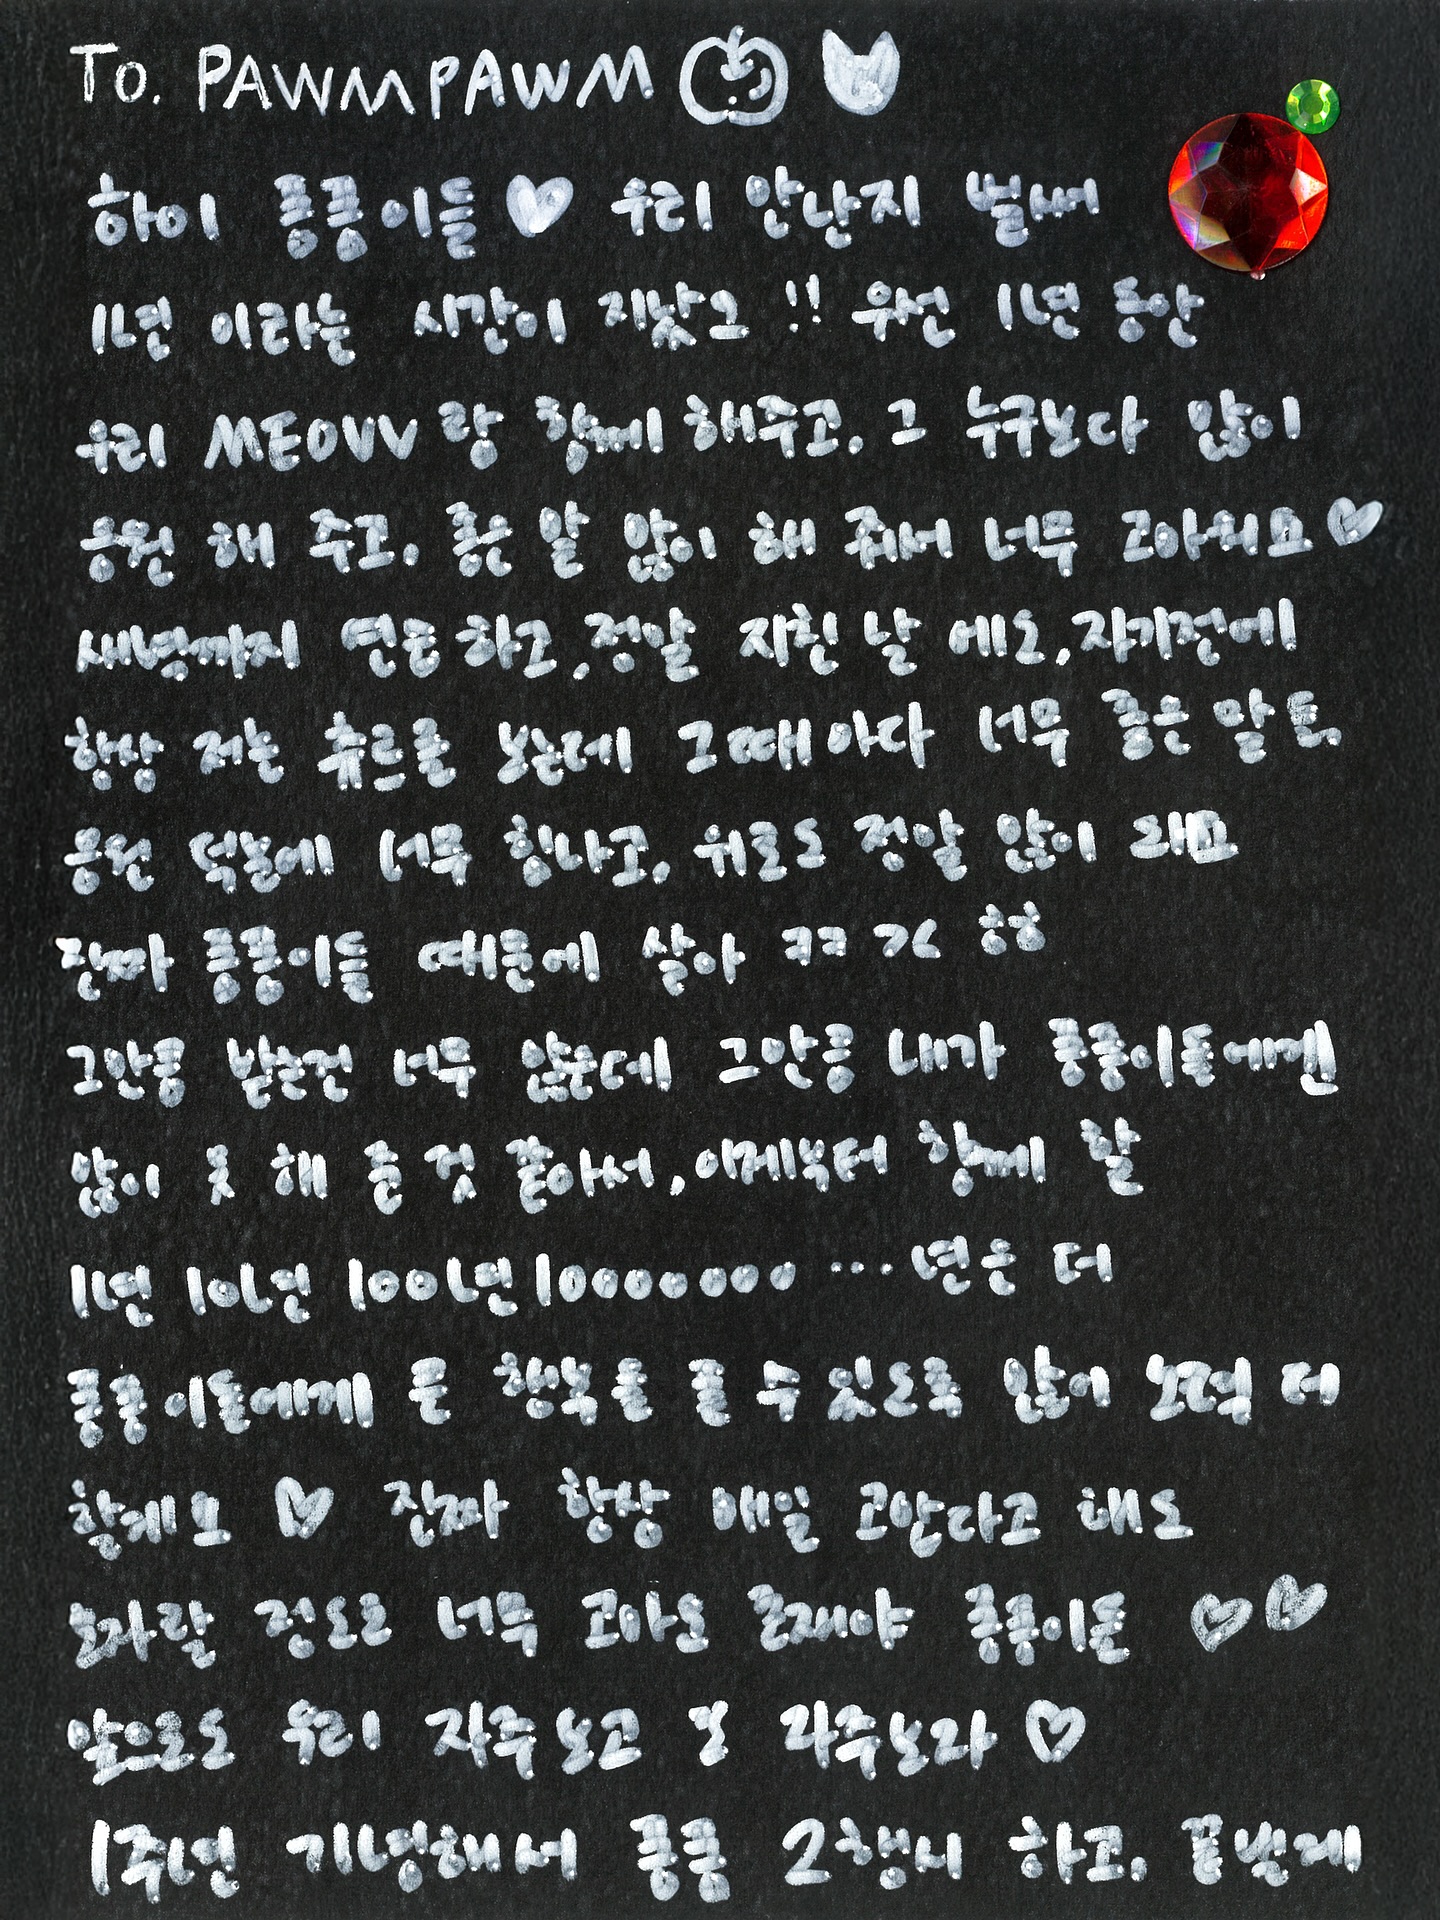 To. PAWMPAWM
하이 퐁퐁이들 ♡ 우리 만난지 벌써
1년 이라는 시간이 지났오 !! 우선 1년 동안
우리 MEOVV랑 함께 해주고, 그 누구보다 많이
응원 해 주고, 좋은 말 많이 해 줘서 너무 고마워요 ♡
새벽까지 연습하고, 정말 지친 날 에도, 자기전에
항상 저는 츄르를 보는데 그때마다 너무 좋은 말 들,
응원 덕분에 너무 힘나고, 위로도 정말 많이 되고
진짜 퐁퐁이들 때문에 살아 ㅋㅋ ㅈㄴ ㅎㅎ
그만큼 받는건 너무 많은데 그만큼 내가 퐁퐁이들에겐
많이 못 해 준 것 같아서, 이제부터 함께 할
1년 10년 100년 10000000 ... 년은 더
퐁퐁이들에게 큰 행복을 줄 수 있도록 많이 노력 더
할게요 ♡ 진짜 항상 매일 고맙다고 해도
모자랄 정도로 너무 고마오 존재야 퐁퐁이들 ♡♡
앞으로도 우리 자주보고 또 자주보자 ♡
1주년 기념해서 퐁퐁 2행시 하고, 끝낼게